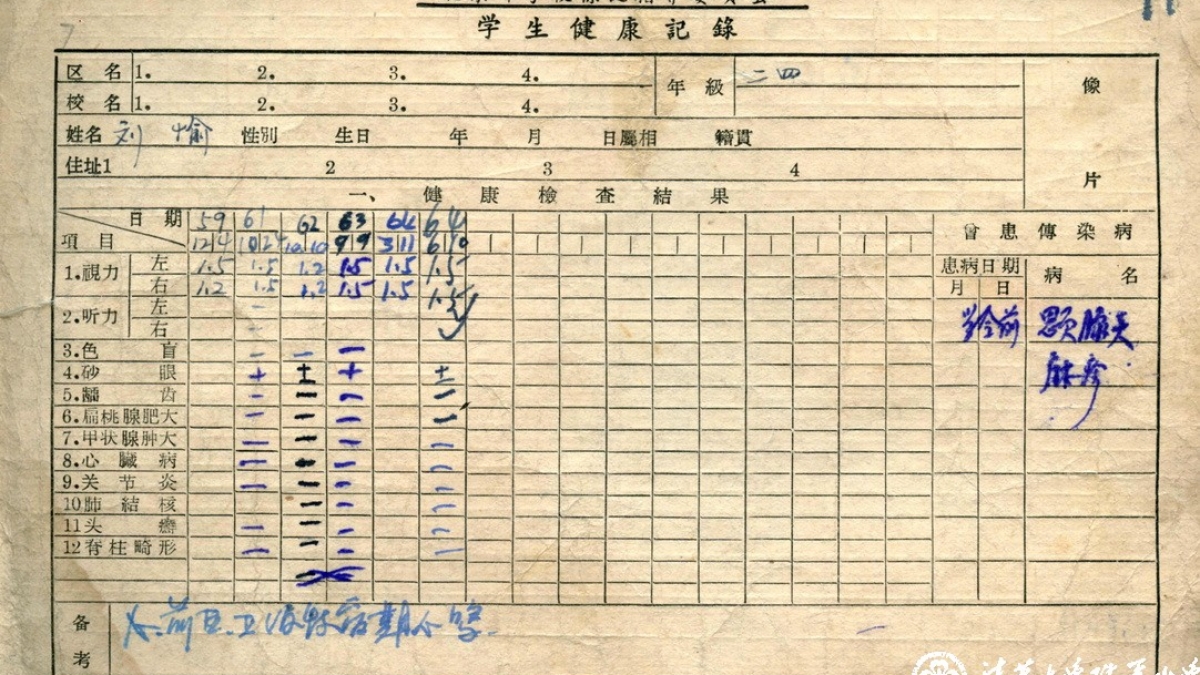 学生健康記錄
区名 1. 2. 3. 4. 年級 二 四 像片
校名 1. 2. 3. 4.
姓名 刘愉 性别 生日 年 月 日屬相 籍貫
住址1 2 3 4
一、健康檢查結果
日期 59 61 62 63 64 64 曾患傳染病
項目 12 4 10 24 10 10 9 9 3 11 6 10 患病日期 病名
1.視力 左 1.5 1.5 1.2 1.5 1.5 1.5 月 日
右 1.2 1.5 1.2 1.5 1.5 1.5
2.听力 左 − 学令前
右 − 麻疹
3.色盲 − − −
4.砂眼 + ± + ±
5.齲齿 − − − −
6.扁桃腺肥大 − − − −
7.甲状腺肿大 − − − −
8.心臟病 − − − −
9.关节炎 − − − −
10肺結核 − − −
11头癬 − − − −
12脊柱畸形 − − − −
备考